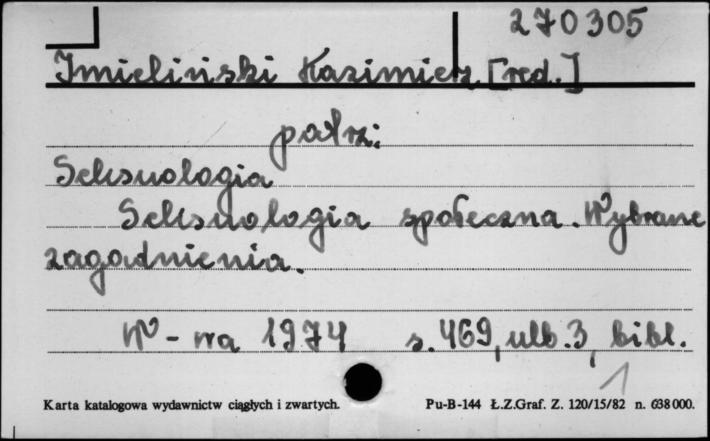 270305
Imieliński Kazimierz [red.]
patrz:
Seksuologia
Seksuologia społeczna. Wybrane
zagadnienia.
W-wa 1974 s. 469, ulb. 3, bibl.
Karta katalogowa wydawnictw ciągłych i zwartych. Pu-B-144 Ł.Z.Graf. Z. 120/15/82 n. 638000.